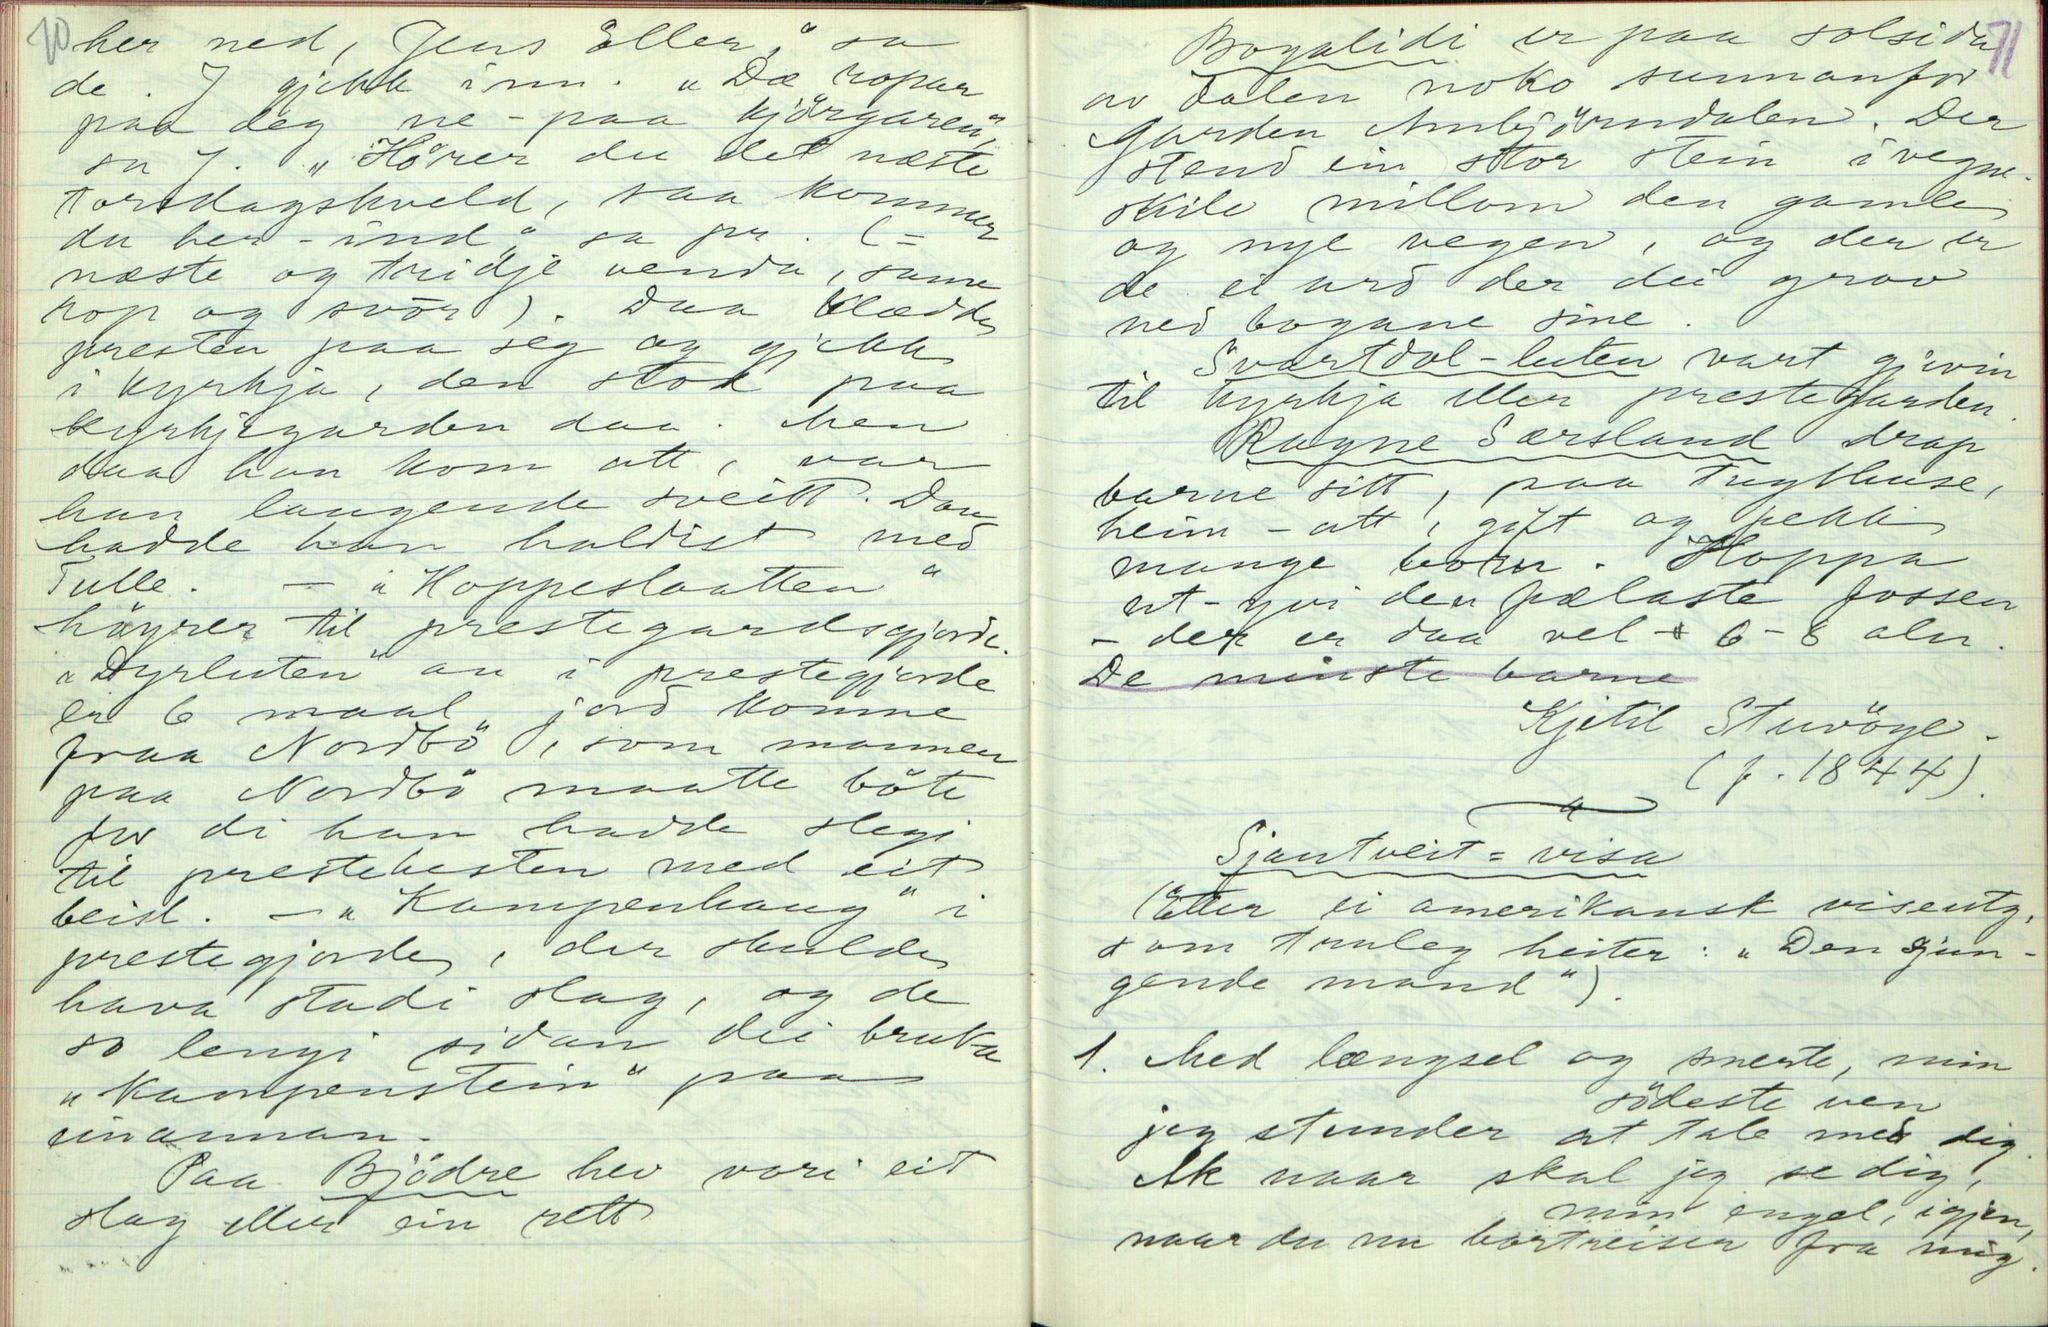 70
her ned, Jens Eller," sa
de. J gjekk inn. "Dæ ropar
paa deg ne-paa kjörgaren",
sa J. "Hörer du det næste
torsdagskveld, saa kommer
du her-ind", sa pr. (=
næste og tridje venda, same
rop og svör). Daa klædde
presten paa seg og gjekk
i kyrkja, den stod paa
kyrkjegarden daa. Men
daa han kom att, var
han laugende sveitt. Daa
hadde han haldist med
Tulle. — "Hoppeslaatten"
höyrer til prestegardsgjorde.
"Dyrluten" au i prestegjorde
er 6 maal jord komne
fraa Nordbö, som mannen
paa Nordbö maatte böte
for di han hadde slegi
til prestehesten med eit
beisl. — "Kampenhaug" i
prestegjorde, der skulde
hava stadi slag, og de
so lengi sidan dei bruka
"kampenstein" paa
einannan.
Paa Bjödre hev vori eit
slag eller ein rett
71
Bogalidi er paa solsida
av dalen noko sunnanfor
garden Ambjörndalen. Der
stend ein stor stein i vegne-
skile millom den gamle
og nye vegen, og der er
de ei urd der dei grov
ned bogane sine.
Svartdal-luten vart gjevin
til kyrkja eller prestegarden.
Ragne Særsland drap
barne sitt, paa tugthuse,
heim-att, gift og fekk
mange born. Hoppa
ut-yvi den fælaste fossen
- der er daa vel 6-8 aln.
De minste barne
Kjetil Stuvöye.
(f. 1844).
Sjautveit-visa
(Etter ei amerikansk viseutg.
som truleg heiter: "Den sjun-
gende mand").
1. Med længsel og smerte, min
södeste ven
jeg stunder at tale med dig.
Ak naar skal jeg se dig,
min engel, igjen,
naar du nu bortreiser fra mig.